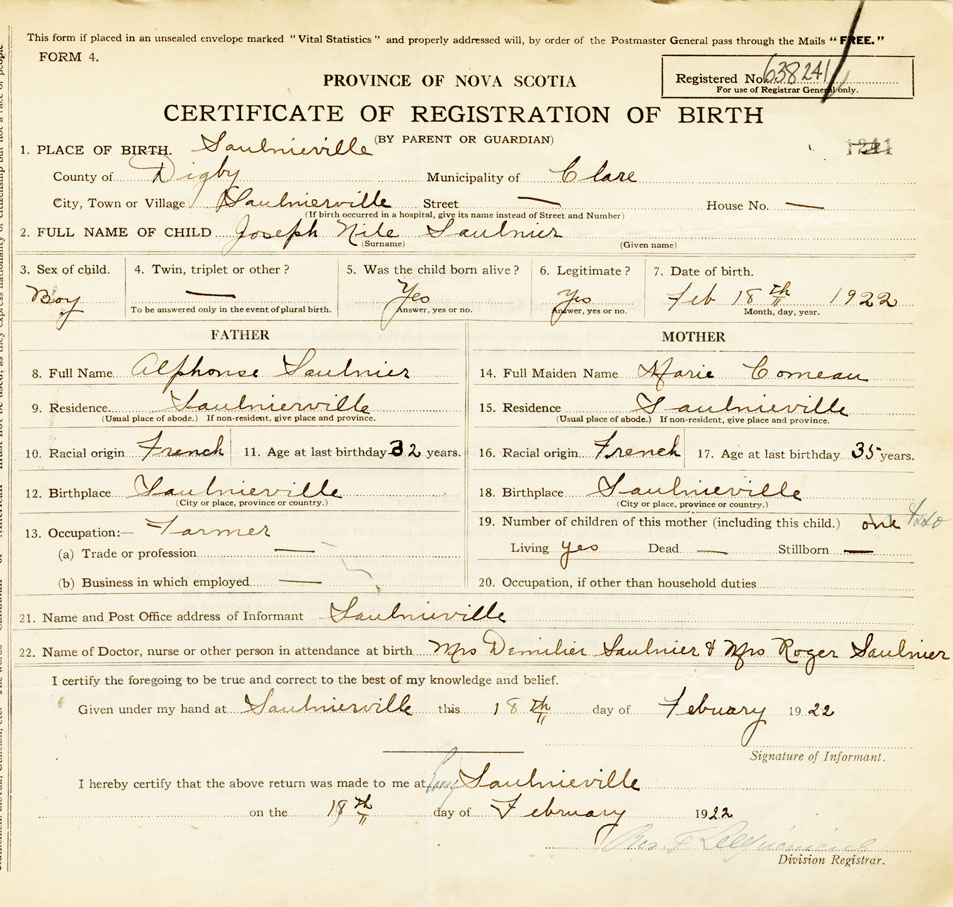 This form if placed in an unsealed envelope marked "Vital Statistics" and properly addressed will, by order of the Postmaster General pass through the Mails "FREE."
FORM 4.
PROVINCE OF NOVA SCOTIA
Registered No. 638241
For use of Registrar General only.
CERTIFICATE OF REGISTRATION OF BIRTH
(BY PARENT OR GUARDIAN)
1. PLACE OF BIRTH. Saulnieville
County of Digby Municipality of Clare
City, Town or Village Saulnierville Street — House No. —
(If birth occurred in a hospital, give its name instead of Street and Number)
2. FULL NAME OF CHILD Joseph Nile Saulnier
(Surname) (Given name)
3. Sex of child. 4. Twin, triplet or other? 5. Was the child born alive? 6. Legitimate? 7. Date of birth.
Boy — Yes Yes Feb 18th 1922
To be answered only in the event of plural birth. Answer, yes or no. Answer, yes or no. Month, day, year.
FATHER MOTHER
8. Full Name Alphonse Saulnier 14. Full Maiden Name Marie Comeau
9. Residence Saulnierville 15. Residence Saulnieville
(Usual place of abode.) If non-resident, give place and province. (Usual place of abode.) If non-resident, give place and province.
10. Racial origin French 11. Age at last birthday 32 years. 16. Racial origin French 17. Age at last birthday 35 years.
12. Birthplace Saulnieville 18. Birthplace Saulnieville
(City or place, province or country.) (City or place, province or country.)
13. Occupation:— Farmer 19. Number of children of this mother (including this child.) one
(a) Trade or profession — Living yes Dead — Stillborn —
(b) Business in which employed — 20. Occupation, if other than household duties
21. Name and Post Office address of Informant Saulnieville
22. Name of Doctor, nurse or other person in attendance at birth Mrs Demilier Saulnier & Mrs Roger Saulnier
I certify the foregoing to be true and correct to the best of my knowledge and belief.
Given under my hand at Saulnierville this 18th day of February 1922
Signature of Informant.
I hereby certify that the above return was made to me at Saulnieville
on the 18th day of February 1922
Division Registrar.